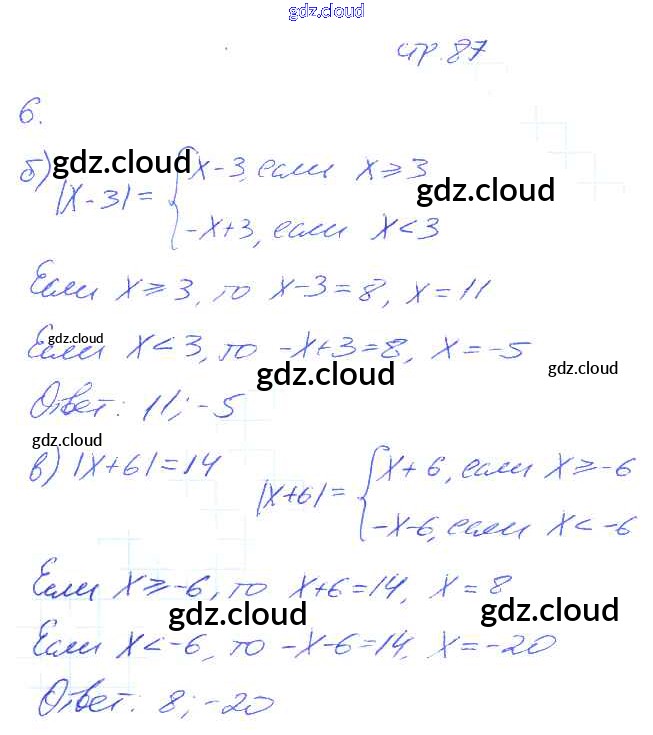 gdz.cloud
стр. 87
6.
б) gdz.cloud
|x-3| = { x-3, если x ⩾ 3
gdz.cloud
-x+3, если x < 3
Если x ⩾ 3, то x-3=8, x=11
gdz.cloud
Если x < 3, то -x+3=8, x=-5
gdz.cloud gdz.cloud
Ответ: 11; -5
gdz.cloud
в) |x+6|=14 |x+6| = { x+6, если x ⩾ -6
-x-6, если x < -6
Если x ⩾ -6, то x+6=14, x=8
gdz.cloud gdz.cloud
Если x < -6, то -x-6=14, x=-20
Ответ: 8; -20